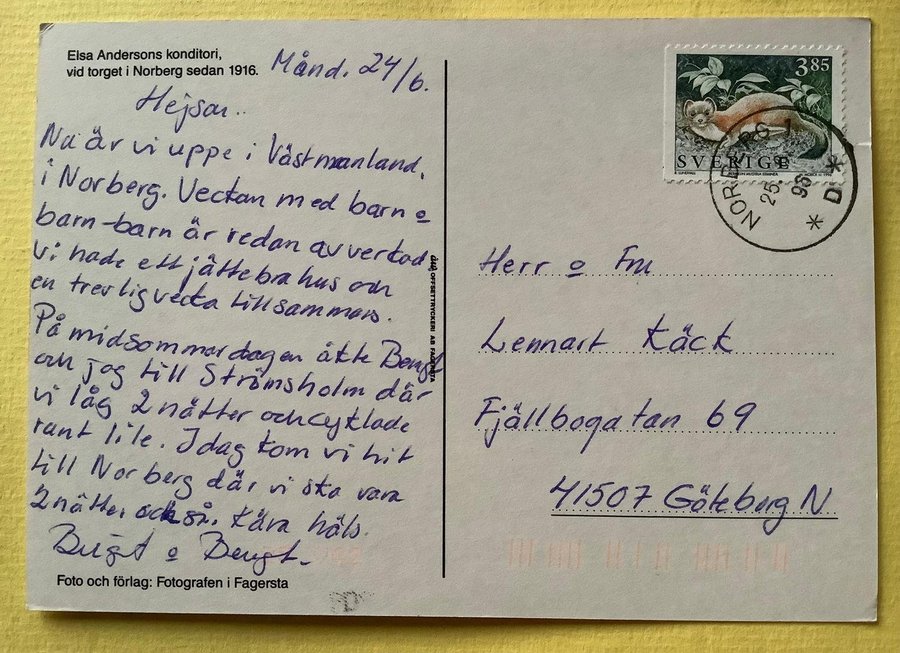 Elsa Andersons konditori,
vid torget i Norberg sedan 1916.
Månd. 24/6.
Hejsan..
Nu är vi uppe i Västmanland,
i Norberg. Veckan med barn o
barn-barn är redan avverkad
vi hade ett jättebra hus och
en trevlig vecka tillsammans.
På midsommardagen åkte Bengt
och jag till Strömsholm där
vi låg 2 nätter och cyklade
runt lite. Idag kom vi hit
till Norberg där vi ska vara
2 nätter också. Kära häls.
Birgit o Bengt.
Foto och förlag: Fotografen i Fagersta
OFFSETTRYCKERI AB FAGERSTA
3.85
SVERIGE
NORBERG 1
25.
96
* D *
Herr o Fru
Lennart Käck
Fjällbogatan 69
41507 Göteborg N